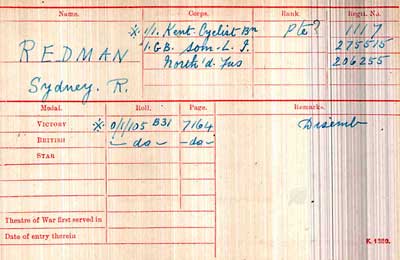 Name. Corps. Rank. Regtl. No.
REDMAN
Sydney. R.
※ 1/1. Kent Cyclist Bn Pte 1117
1. G.B. Som. L. I. 275515
North'd. Fus 206255
Medal. Roll. Page. Remarks.
VICTORY ※ O/1/105 B31 7164 Disemb
BRITISH — do — — do —
STAR
Theatre of War first served in
Date of entry therein
K. 1380.